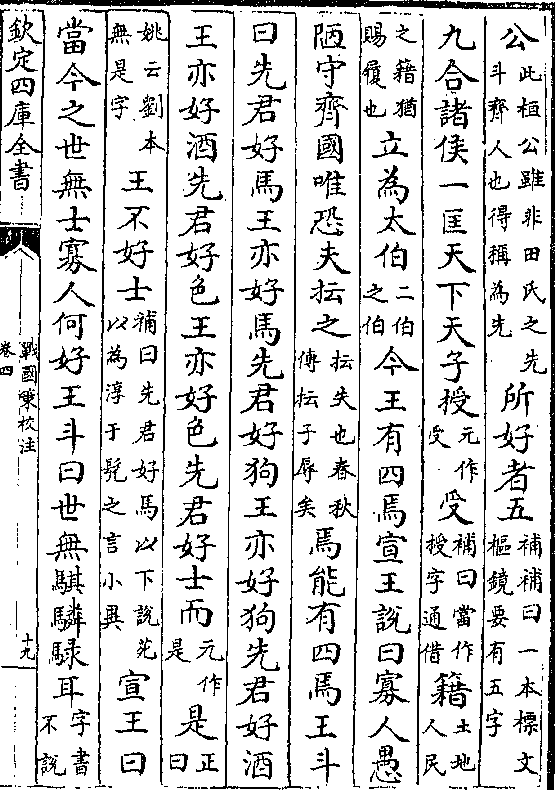 公此桓公雖非田氏之先斗齊人也得稱為先所好者五補補曰一本標文樞鏡要有五字
九合諸侯一匡天下天子授元作受受補曰當作授字通借籍土地人民
之籍猶賜履也立為太伯二伯之伯今王有四焉宣王說曰寡人愚
陋守齊國唯恐夫抎之抎失也春秋傳抎子辱矣焉能有四焉王斗
曰先君好馬王亦好馬先君好狗王亦好狗先君好酒
王亦好酒先君好色王亦好色先君好士而元作是是正曰
姚云劉本無是字王不好士補曰先君好馬以下說苑以為淳于髠之言小異宣王曰
當今之世無士寡人何好王斗曰世無騏驎騄耳字書不說
欽定四庫全書
戰國策校注
卷四
十九